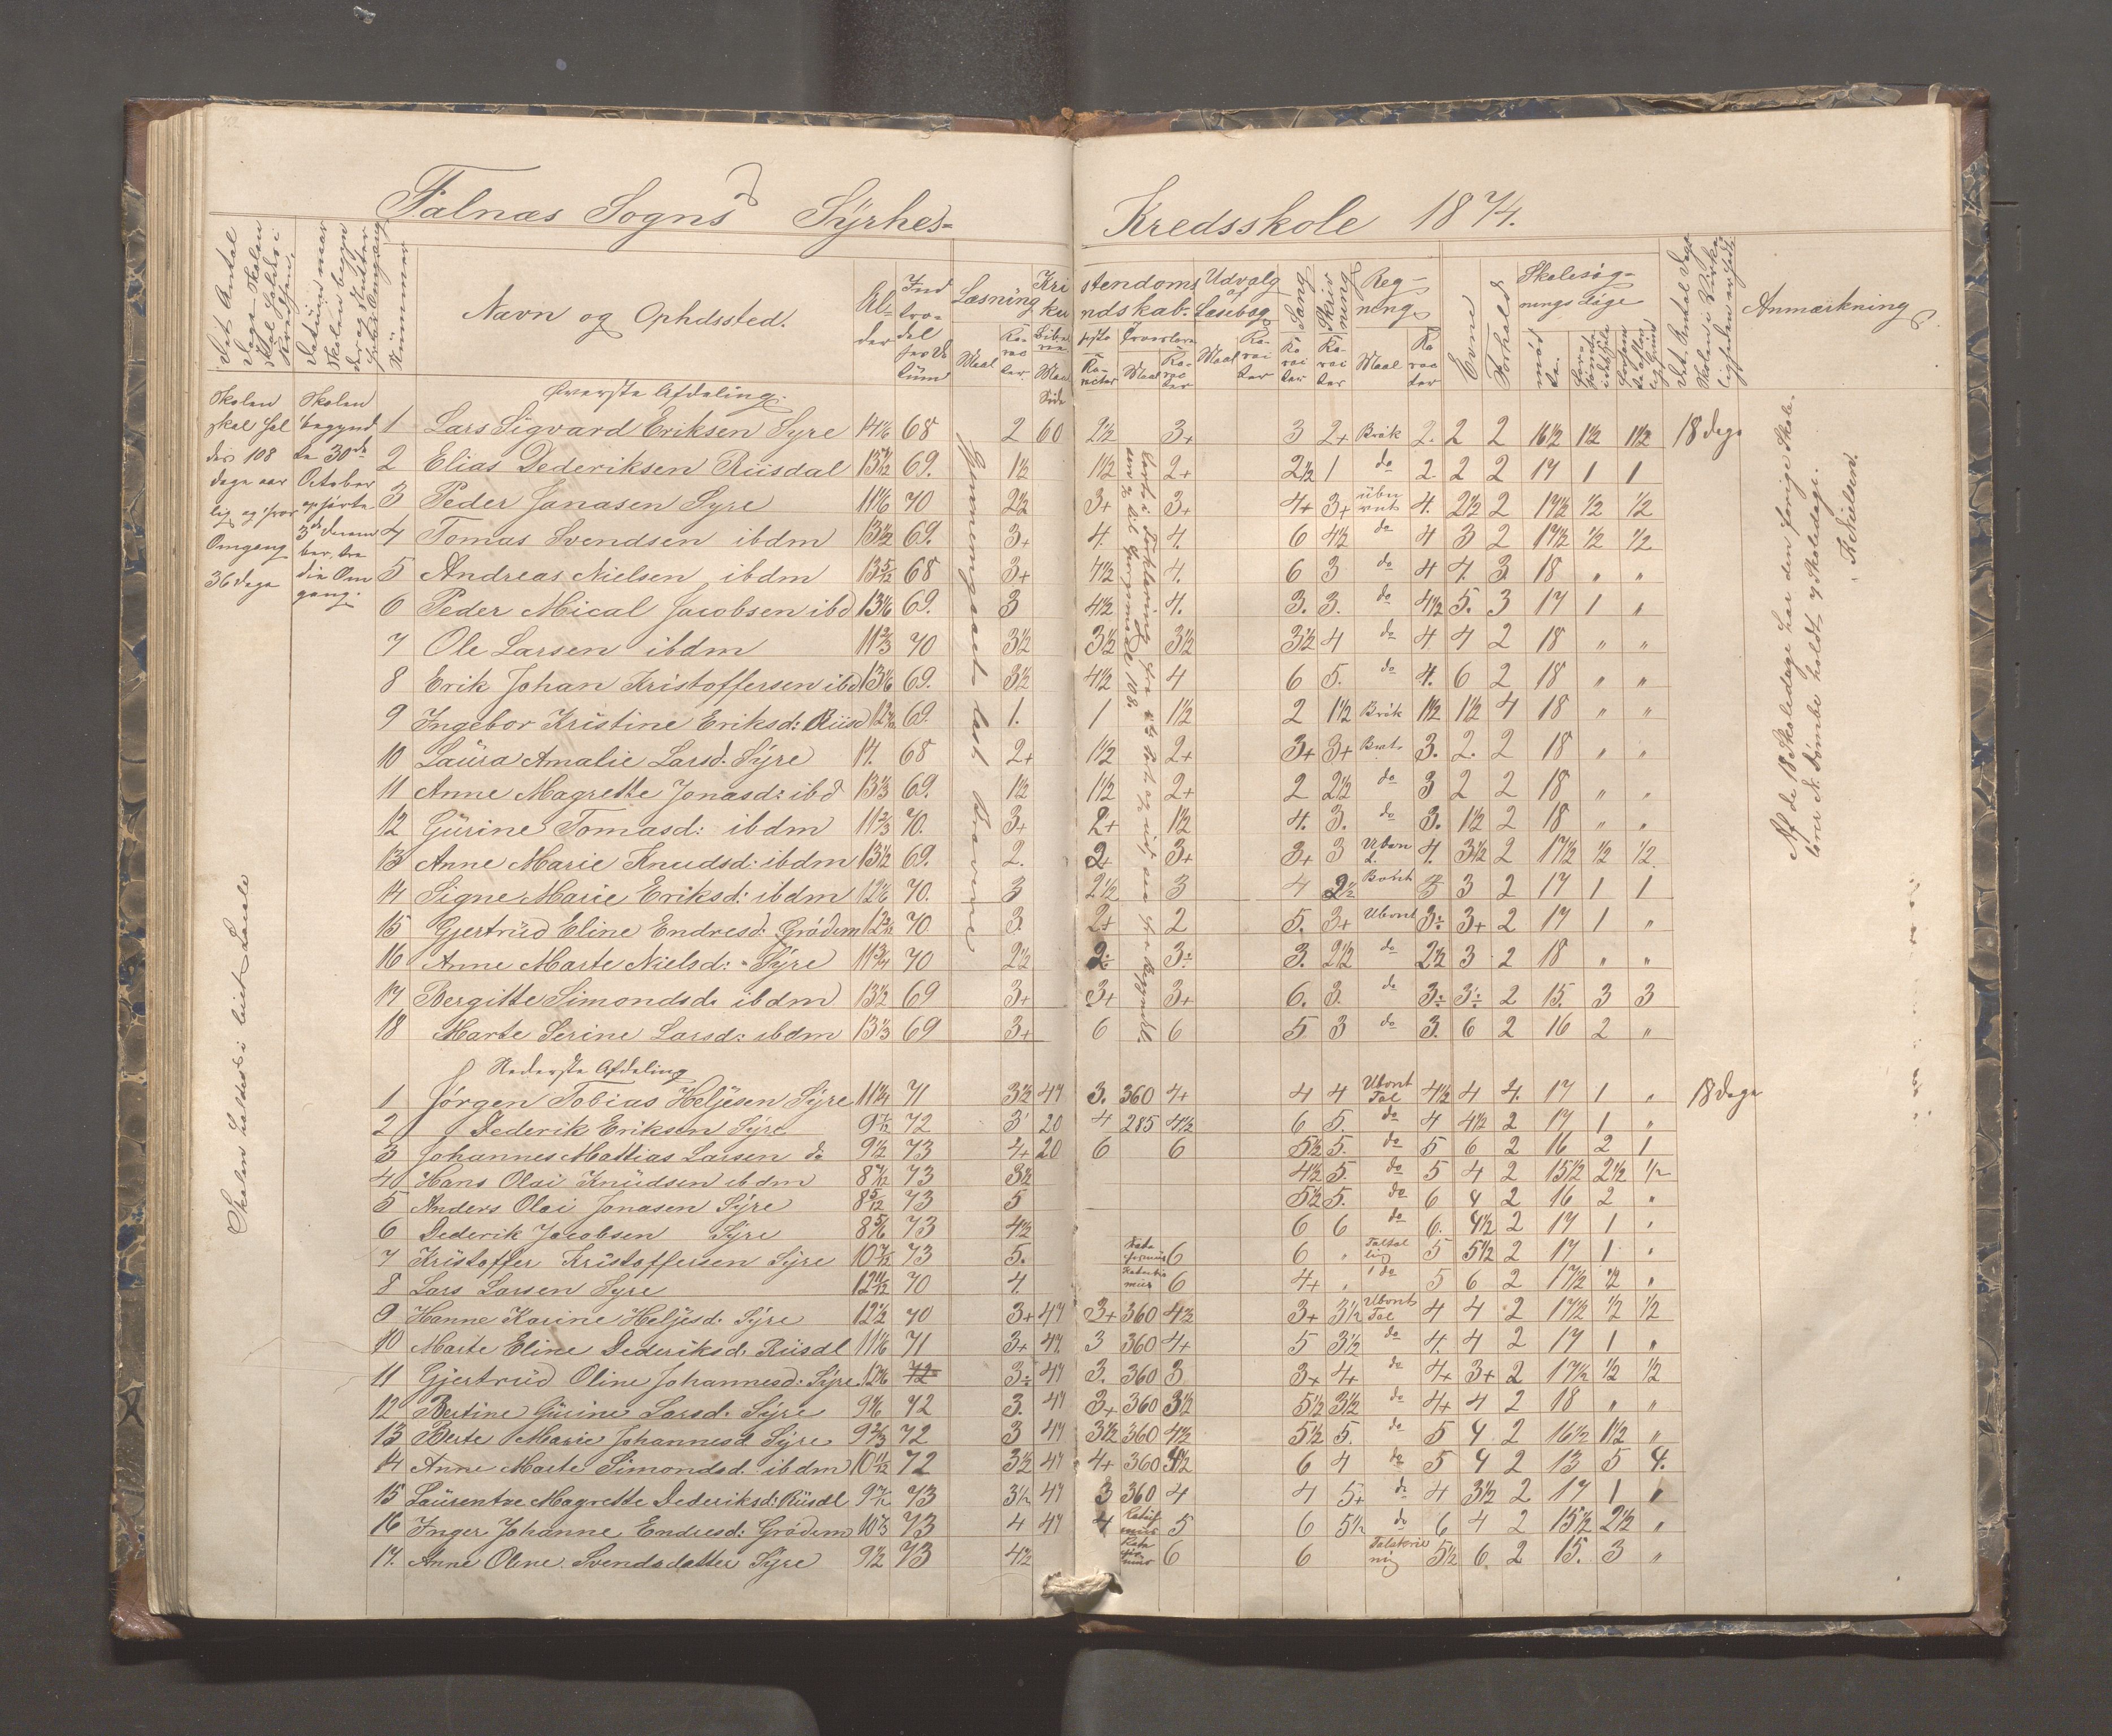 Falnæs Sogns Syrhes= Kredsskole 1874.
Det Antal Dage Skolen skal holdes i Kredsen.
Datum naar Skolen begynder og slutter hver Omgang
Nummer
Navn og Opholdssted.
Alder
Indtrædelses Datum
Læsning
Maal
Karacter
Kristendoms Kundskab.
Bibelhistorie
Maal Side
Karacter
Troeslære
Maal
Karacter
Udvalg af Læsebog
Maal
Karacter
Sang
Karacter
Skrivning
Karacter
Regning
Maal
Karacter
Evne
Forhold
Skolesøgnings Dage
mødte.
forsømte i det hele
forsømte af lovlig Grund
Det Antal Dage Skolen i Virkeligheden er holdt
Anmærkning
Øverste Afdeling.
Skolen skal holdes 108 dage aarlig og hver Omgang 36 dage
Skolen begyndte 30de October ophørte 3de December, tredie Omgang.
1 Lars Sigvard Eriksen Syre 14 1/6 68 2 60 2½ 3+ 3 2+ Brök 2. 2 2 16½ 1½ 1½ 18 dage
2 Elias Dederiksen Riisdal 69. 1½ 1½ 2+ 2½ 1 do 2. 2 2 17 1 1
3 Peder Janasen Syre 11 1/6 70 2½ 3+ 3+ 4+ 3+ 4. 2½ 2 17½ ½ ½
4 Tomas Svendsen ibdm 13½ 69. 3+ 4. 4. 6 4½ do 4 3 2 17½ ½ ½
5 Andreas Nielsen ibdm 13 5/12 68 3+ 4½ 4. 6 3 do 4 4. 3 18 " "
6 Peder Mical Jacobsen ibd 13 1/6 69. 3 4½ 4. 3. 3. do 4½ 5. 3 17 1 "
7 Ole Larsen ibdm 11 2/3 70 3½ 3½ 3½ 3½ 4 do 4. 4 2 18 " "
8 Erik Johan Kristoffersen ibd 13 1/6 69. 3½ 4½ 4 6 5. do 4. 6 2 18 " "
9 Ingebor Kristine Eriksd: Riisd 69. 1. 1 1½ 2 1½ Brök 1½ 1½ 4 18 " "
10 Laüra Amalie Larsd. Syre 14. 68 2+ 1½ 2+ 3+ 3+ 3. 2. 2 18 " "
11 Anne Magrette Jonasd: ibd 13 1/3 69. 1½ 1½ 2+ 2 2½ do 3 2 2 18 " "
12 Gürine Tomasd: ibdm 11 2/3 70. 3+ 2+ 1½ 4. 3. do 3. 1½ 2 18 " "
13 Anne Marie Knudsd: ibdm 13½ 69. 2. 2+ 3+ 3+ 3 4. 3½ 2 17½ ½ ½
14 Signe Marie Eriksd: ibdm 12 1/6 70. 3 2½ 3 4 2½ 3 3 2 17 1 1
15 Gjertrüd Eline Endresd: Grödem 70 3 2+ 2 5. 3+ Ubent 3÷ 3+ 2 17 1 "
16 Anne Marte Nielsd: Syre 11¾ 70 2½ 2÷ 3÷ 3. 2½ do 2½ 3 2 18 " "
17 Bergitte Simondsd. ibdm 13½ 69 3+ 3+ 3+ 6. 3. do 3÷ 3÷ 2 15. 3 3
18 Marte Serine Larsd: ibdm 13 1/3 69 3+ 6 6 5 3 do 3. 6 2 16 2 "
Nederste Afdeling
1 Jörgen Tobias Heljesen Syre 11¼ 71 3½ 47 3. 360 4+ 4 4 Ubent Tal 4½ 4 4. 17 1 " 18 dage
2 Dederik Eriksen Syre 9 7/12 72 3 20 4 285 4½ 6 5. do 4 4½ 2 17 1 "
3 Johannes Mattias Larsen do 9½ 73 4+ 20 6 6 5½ 5. do 5 6 2 16 2 1
4 Hans Olai Knüdsen ibdm 73 3½ 4½ 5. do 5 4 2 15½ 2½ ½
5 Anders Olai Jonasen Syre 8 5/12 73 5 5½ 5. do 6 4 2 16 2 "
6 Dederik Jacobsen Syre 8 5/6 73 4½ 6 6 do 6. 4½ 2 17 1 "
7 Kristoffer Kristoffersen Syre 10 7/12 73 5. 6 6 " 5 5½ 2 17 1 "
8 Lars Larsen Syre 12 11/12 70 4. 6 4+ " do 5 6 2 17½ ½ "
9 Hanne Karine Heljesd. Syre 12½ 70 3+ 47 3+ 360 4½ 3+ 3½ Ubent Tal 4 4 2 17½ ½ ½
10 Marte Eline Dederiksd. Riisdl 11 1/6 71 3+ 47 3 360 4+ 5 3½ do 4. 4 2 17 1 "
11 Gjertrüd Oline Johannesd: Syre 12 1/6 72 3÷ 47 3. 360 3 3+ 4+ do 4+ 3+ 2 17½ ½ ½
12 Bertine Gürine Larsd. Syre 9 1/6 72 3. 47 3+ 360 3½ 5½ 3½ do 4+ 4 2 18 " "
13 Berte Marie Johannesd Syre 9 2/3 72 3 47 3½ 360 4½ 5½ 5. do 5 4 2 16½ 1½ "
14 Anne Marte Simondsd. ibdm 10 11/12 72 3½ 47 4+ 360 4½ 6 4 do 5 4 2 13 5 4.
15 Laürentse Magrette Dederiksd: Riisdl 9 7/12 73 3½ 47 3 360 4 4 5+ do 4 3½ 2 17 1 "
16 Inger Johanne Endresd: Grödem 73 4 47 4 5 6 5½ do 6 4 2 15½ 2½ "
17. Anne Oline Svendsdatter Syre 9½ 73 4½ 6 6 5½ 6. 2 15. 3 "
Gjennemgaaet
Skolen holdes i leiet Locale
Af de 18 Skoledage har den forige Skolelærer N. Tömbe holdt 7 Skoledage.